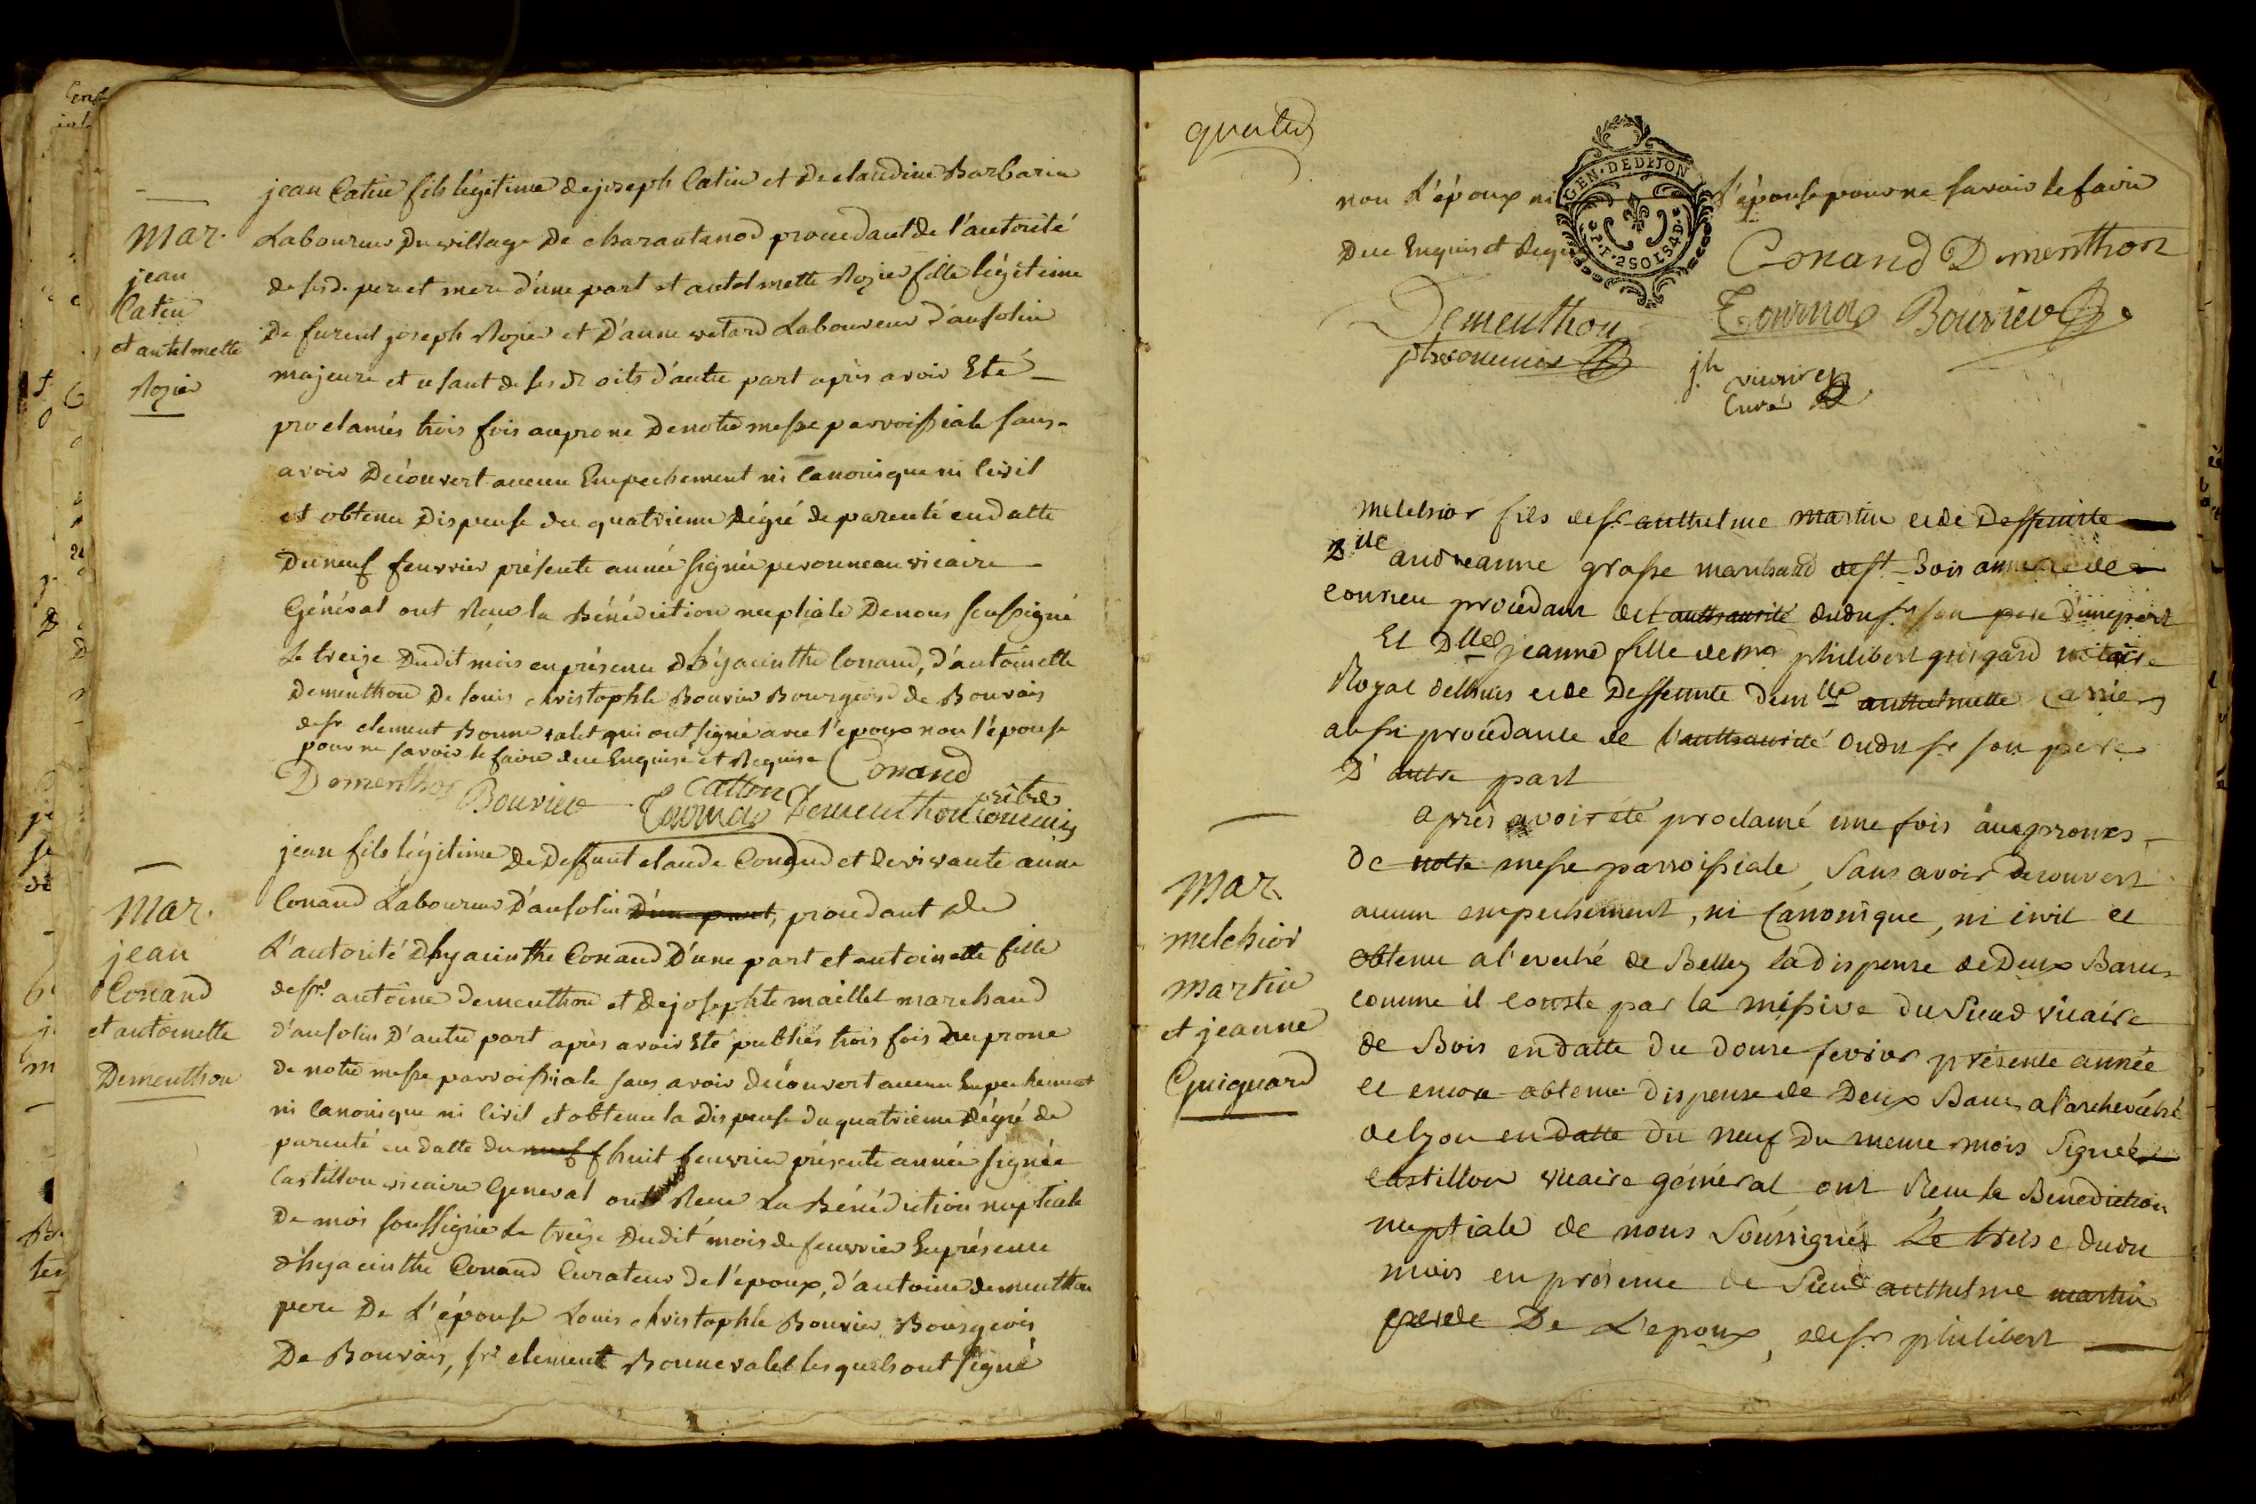 Mar.
jean
Catin
et antelmette
Rozier
jean Catin fils légitime de joseph Catin et de claudine Barbarin
Laboureur du village de charantonod procedant de l'autorité
de sesd. pere et mere d'une part et antelmette Rozier fille légitime
de furent joseph Rozier et d'anne vetard Laboureur d'ansolin
majeure et usant de ses droits d'autre part après avoir Eté
proclamés trois fois au prone de notre messe parroissiale sans
avoir découvert aucun Empechement ni Canonique ni Civil
et obtenu dispense du quatrieme dégré de parenté en datte
du neuf feuvrier présente année signée peronneau vicaire
Général ont Reçu la Bénédiction nuptiale de nous soussigné
le treize dudit mois en présence d'hÿacinthe Conand, d'antoinette
dementhon de louis christophle Bouvier Bourgeois de Bouvais
de sr clement Bonnevalet qui ont signé avec l'epoux non l'épouse
pour ne savoir le faire due Enquise et Requise Conand
Dementhon Bouvier Catton
Tournod Dementhon ptre comunis
Mar.
jean
Conand
et antoinette
Dementhon
jean fils légitime de deffunt claude Conand et de vivante anne
Conand Laboureur d'ansolin d'une part, procedant de
L'autorité d'hyacinthe Conand d'une part et antoinette fille
de sr antoine dementhon et de josephte maillet marchand
d'ansolin d'autre part après avoir Eté publiés trois fois au prone
de notre messe parroissiale sans avoir découvert aucun Empechement
ni Canonique ni Civil et obtenu la dispense du quatrieme dégré de
parenté en datte du neuf huit feuvrier présente année signée
Castillon vicaire General ont Reçu La Bénédiction nuptiale
de moi soussigné le treize dudit mois de feuvrier En présence
d'hyacinthe Conand Curateur de l'époux, d'antoine dementhon
pere De L'épouse Louis christophle Bouvier Bourgeois
De Bouvais, sr clement Bonnevalet lesquels ont signé
GEN. DE DIJON
non L'époux ni L'épouse pour ne savoir le faire
due Enquis et Requis
Conand Dementhon
Dementhon Tournod Bouvier
ptre comunis
jh
Curé
Mar.
melchior
martin
et jeanne
Guigard
melchior fils de sr anthelme martin et de Deffeunte
dlle andreanne grosse marchand de st Bois annexe de
conzieu procédant de l'authaurité dudu sr son pere d'une part
Et Dlle jeanne fille de mr philibert guigard notaire
Royal de et de Deffeunte demlle anthelmette Carrier
aussi procédante de l'authaurité dudu sr son pere
D'autre part
après avoir été proclamé une fois aux prones
de notre messe parroissiale, sans avoir decouvert
aucun empechement, ni Canonique, ni civil et
obtenu a l'evéché de Belley la dispense de Deux Bancs
comme il conste par la missive du Sieur vicaire
de Bois en datte du douze fevrier présente année
et encore obtenu dispense de Deux Bancs a l'archevéché
de lyon en datte du neuf du meme mois Signée
castillon vicaire général ont Reçu la Benediction
nuptiale de nous Soussignés Le treise dudu
mois en presence de Sieur anthelme martin
De L'epoux, de sr philibert